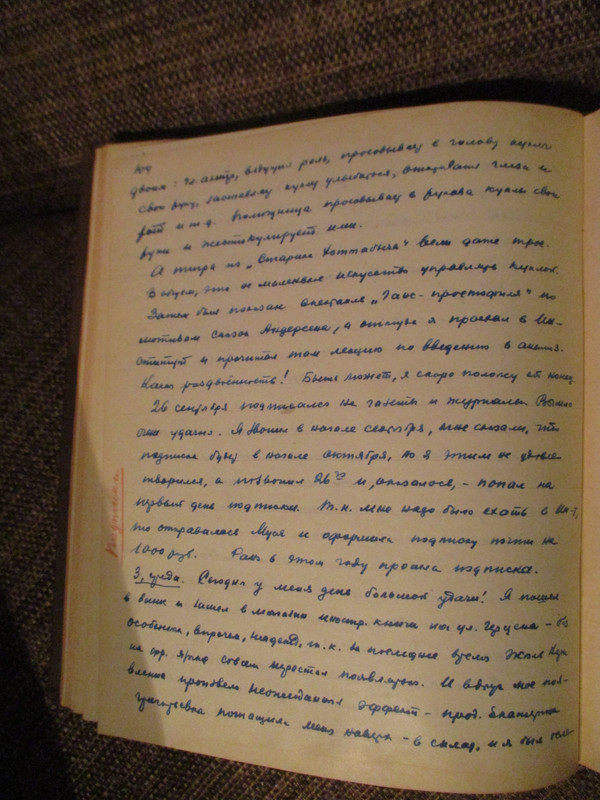 двоим: та актр., ведущая роль, просовывает в голову куклы
свою руку, заставляет куклу улыбаться, открывать глаза и
рот и т.д. Помощница просовывает в рукава куклы свои
руки и жестикулирует ими.
А тигра из „Старика Хоттабыча" вели даже трое.
В общем, это не маленькое искусство управлять куклой.
Затем был показан спектакль „Ганс-простофиля" по
мотивам сказок Андерсена, а оттуда я проехал в Ин-
ститут и прочитал там лекцию по введению в анализ.
Какая раздвоенность! Быть может, я скоро положу ей конец.
26 сентября подписался на газеты и журналы
очень удачно. Я звонил в начале сентября, мне сказали, что
подписка будет в начале октября, но я этим не удовле-
творился, а позвонил 26го и, оказалось, - попал на
первый день подписки. Т.к. мне надо было ехать в Ин-т,
то отправилась Муся и оформила подписку почти на
1000 руб. Так в этом году прошла подписка.
подписка
3, среда. Сегодня у меня день большой удачи! Я пошел
в банк и зашел в магазин иностр. книги на ул. Герцена - без
особенных, впрочем, надежд, т.к. за последнее время
совсем перестал появляться. И вдруг мое поя-
вление произвело неожиданный эффект - прод. Екатерина
Григорьевна потащила меня наверх - в склад, и я был